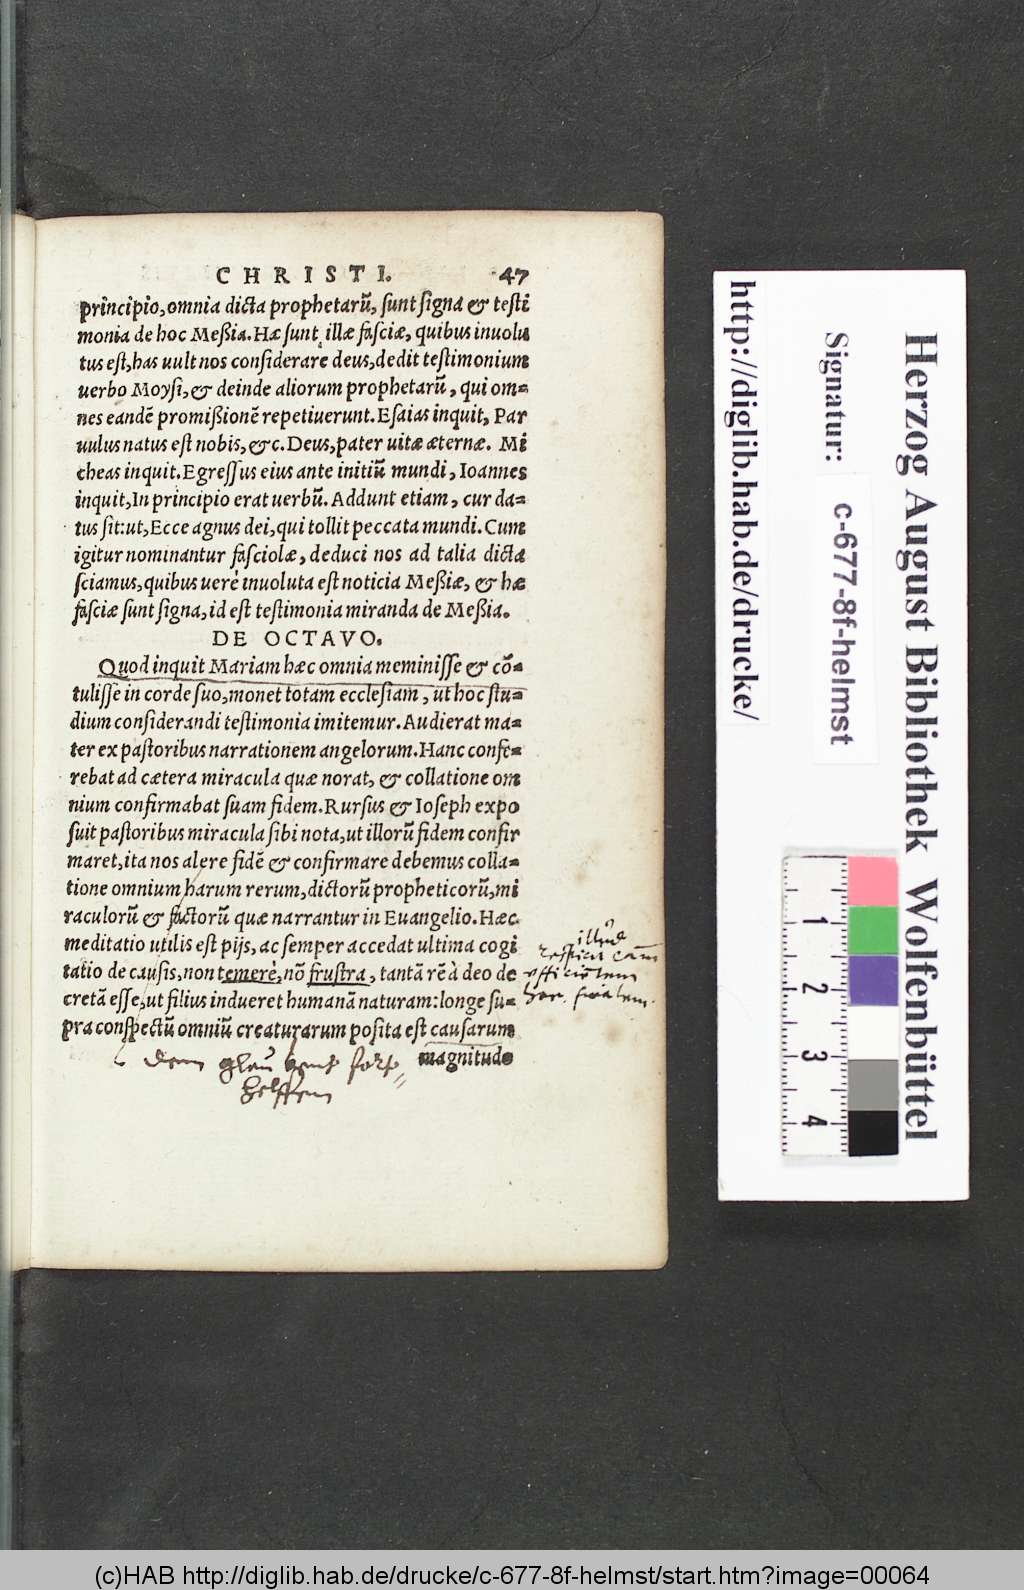 CHRISTI. 47
principio, omnia dicta prophetarũ, sunt signa & testi
monia de hoc Meßia. Hæ sunt illæ fasciæ, quibus inuolu
tus est, has uult nos considerare deus, dedit testimonium
uerbo Moysi, & deinde aliorum prophetarũ, qui om=
nes eandẽ promißionẽ repetiuerunt. Esaias inquit, Par
uulus natus est nobis, &c. Deus, pater uitæ æternæ. Mi
cheas inquit. Egressus eius ante initiũ mundi, Ioannes
inquit, In principio erat uerbũ. Addunt etiam, cur da=
tus sit: ut, Ecce agnus dei, qui tollit peccata mundi. Cum
igitur nominantur fasciolæ, deduci nos ad talia dicta
sciamus, quibus uerè inuoluta est noticia Meßiæ, & hæ
fasciæ sunt signa, id est testimonia miranda de Meßia.
DE OCTAVO.
Quod inquit Mariam hæc omnia meminisse & cõ=
tulisse in corde suo, monet totam ecclesiam, ut hoc stu=
dium considerandi testimonia imitemur. Audierat ma=
ter ex pastoribus narrationem angelorum. Hanc confe=
rebat ad cætera miracula quæ norat, & collatione om
nium confirmabat suam fidem. Rursus & Ioseph expo
suit pastoribus miracula sibi nota, ut illorũ fidem confir
maret, ita nos alere fidẽ & confirmare debemus colla=
tione omnium harum rerum, dictorũ propheticorũ, mi
raculorũ & factorũ quæ narrantur in Euangelio. Hæc
meditatio utilis est pijs, ac semper accedat ultima cogi
tatio de causis, non temerè, nõ frustra, tantã rẽ à deo de
cretã esse, ut filius indueret humanã naturam: longe su=
pra conspectũ omniũ creaturarum posita est causarum
magnitudo
illud
respicit cam
efficiẽtem
hoc finalem.
helffen
Herzog August Bibliothek Wolfenbüttel
Signatur: c-677-8f-helmst
http://diglib.hab.de/drucke/
1
2
3
4
(c)HAB http://diglib.hab.de/drucke/c-677-8f-helmst/start.htm?image=00064